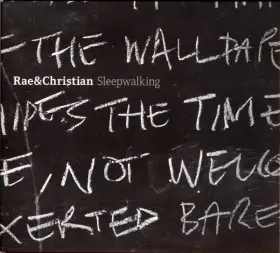 - THE WALLPAPE
Rae&Christian Sleepwalking
HIDES THE TIME
E, NOT WELCO
XERTED BARE